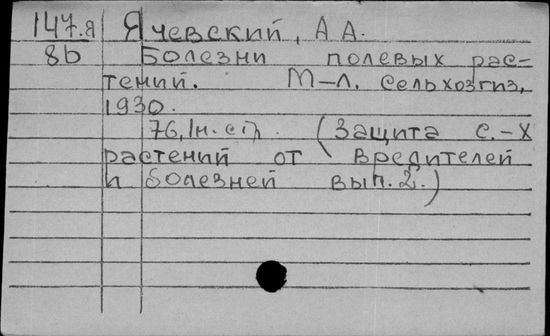 147.я Ячевский, А А.
8b Болезни полевых рас-
тений. М-Л. Сельхозгиз,
1930.
76,1н. с. (Защита с.-х
растений от вредителей
и болезней вып. 2.)